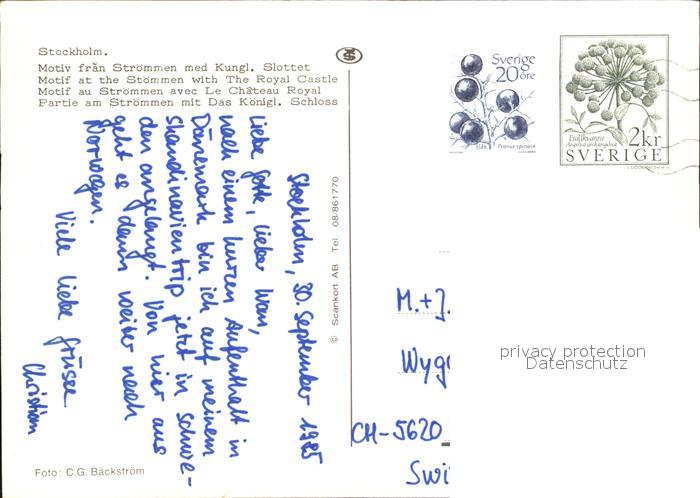 Stockholm.
Motiv från Strömmen med Kungl. Slottet
Motif at the Stömmen with The Royal Castle
Motif au Strömmen avec Le Château Royal
Partie am Strömmen mit Das Königl. Schloss
Stockholm, 30. September 1985
Liebe Gotte, lieber Wan,
nach einem kurzen Aufenthalt in
Dänemark bin ich auf meinem
Skandinavientrip jetzt in Schwe-
den angelangt. Von hier aus
geht es dann weiter nach
Norwegen.
Viele liebe Grüsse
Christian
Foto: C.G. Bäckström
© Scankort AB Tel. 08/861770
Sverige
20 öre
Slån Prunus spinosa
Fjällkvanne
Angelica archangelica
2 kr
SVERIGE
M.+J.
Wyg
CH-5620
Swi
privacy protection
Datenschutz